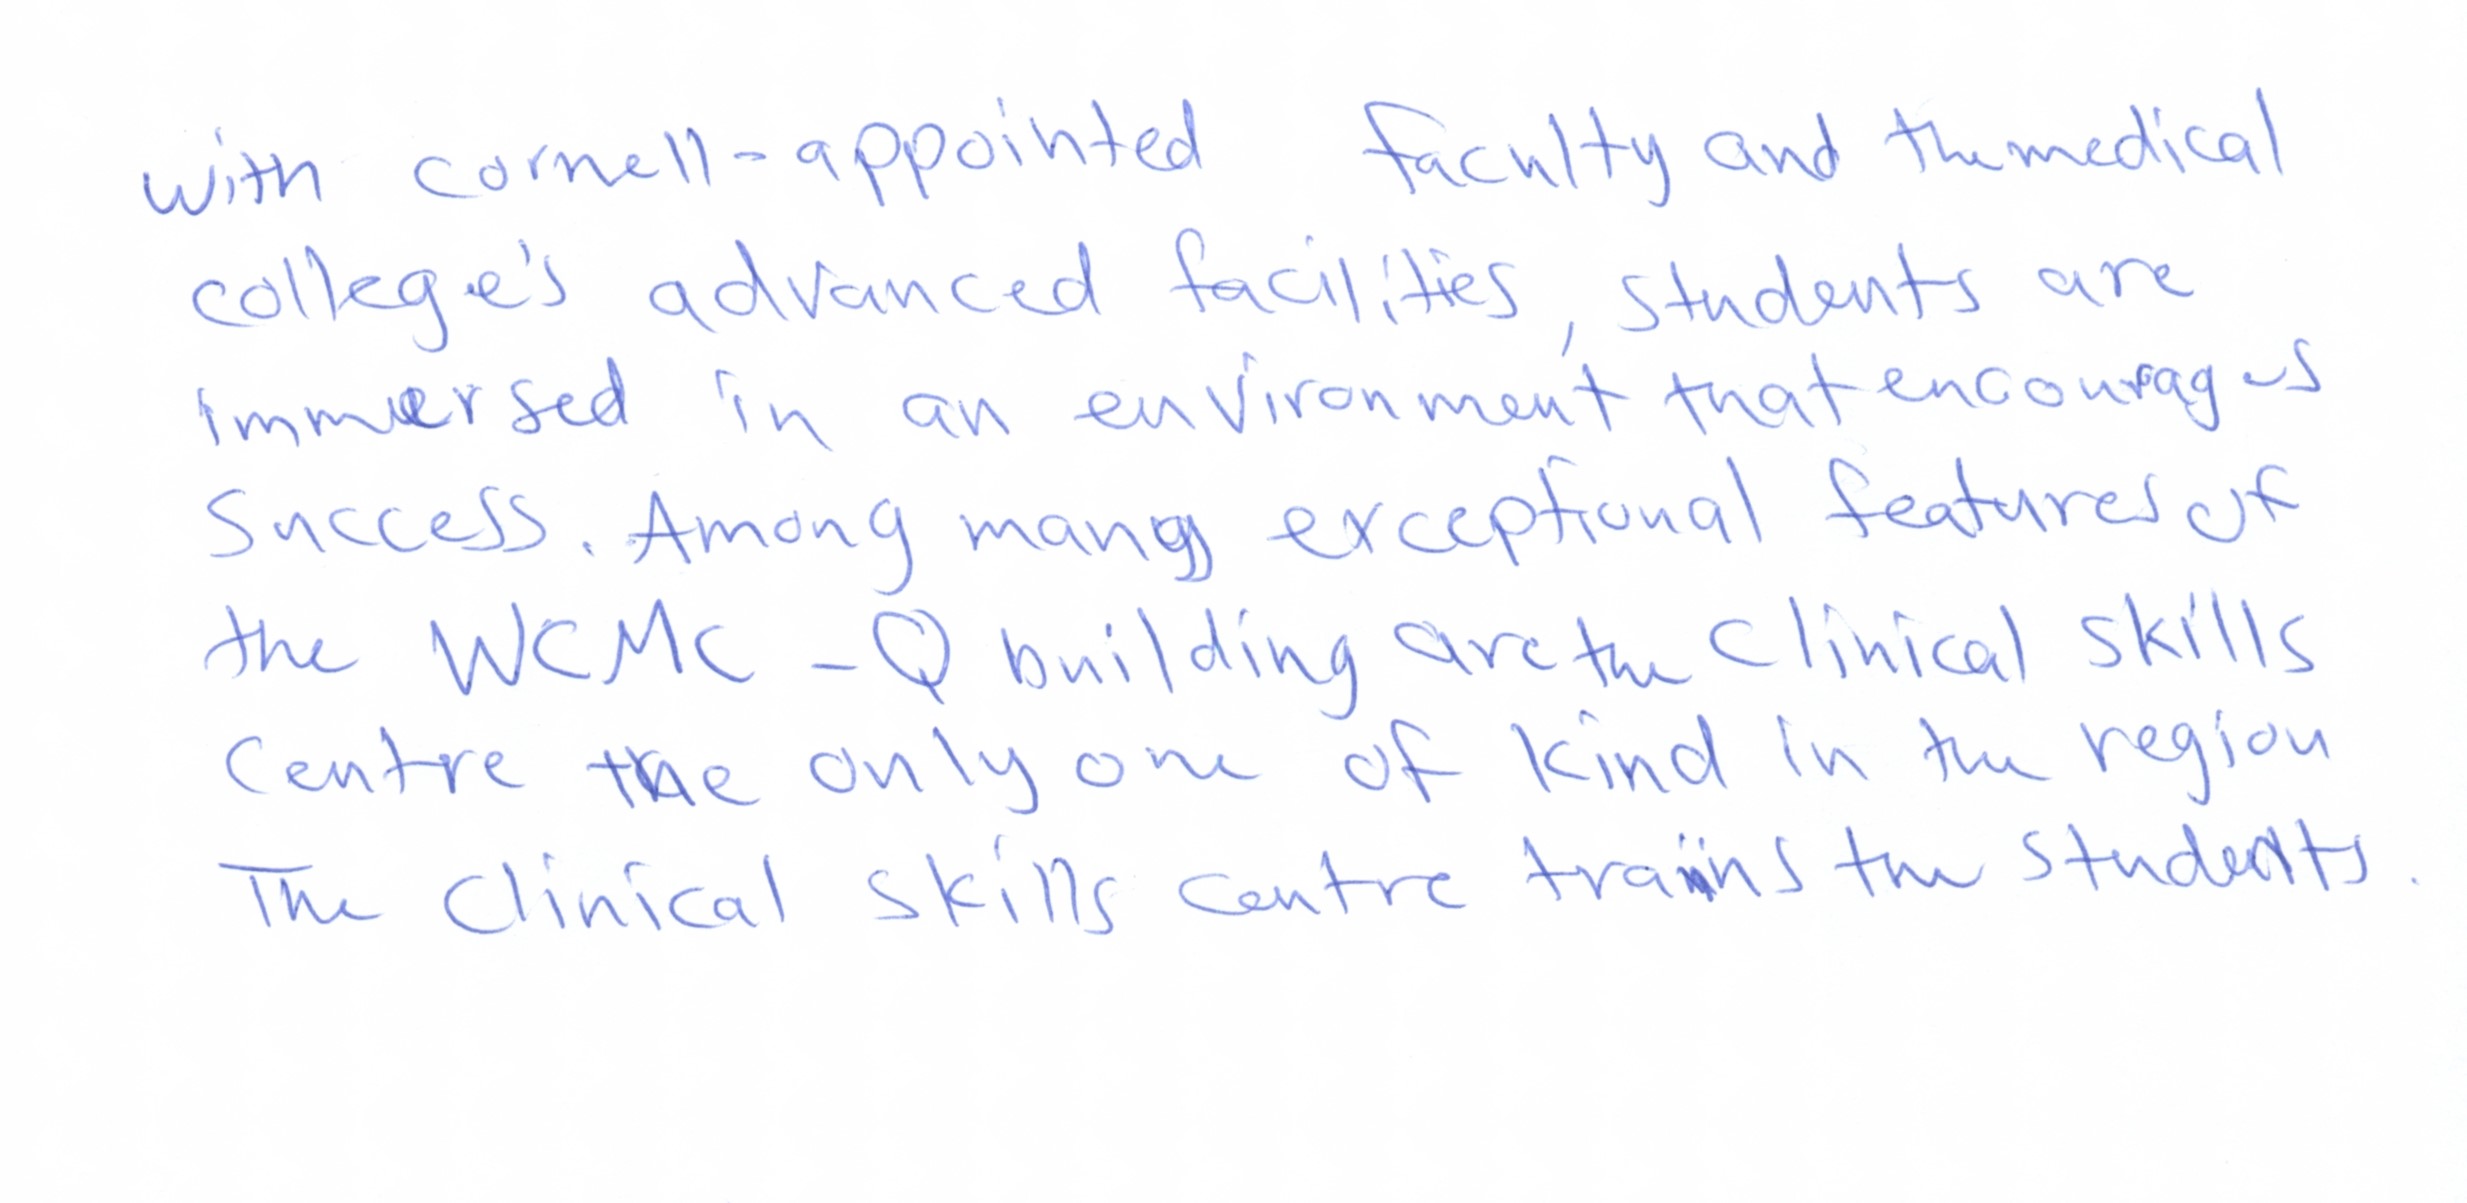 with cornell-appointed faculty and the medical
college's advanced facilities, students are
immersed in an environment that encourages
Success. Among many exceptional features of
the WCMC-Q building are the Clinical skills
Centre the only one of kind in the region
The Clinical skills centre trains the students.